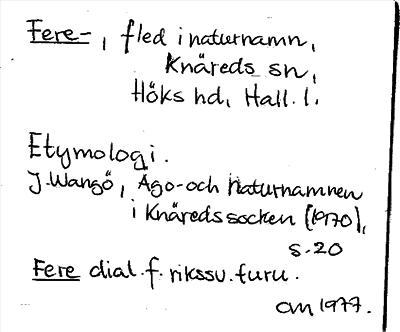 Fere-, fled i naturnamn,
Knäreds sn,
Höks hd, Hall. l.
Etymologi.
J. Wangö, Ägo- och Naturnamnen
i Knäredssocken (1970),
s. 20
Fere dial. f. rikssv. furu.
CM 1977.